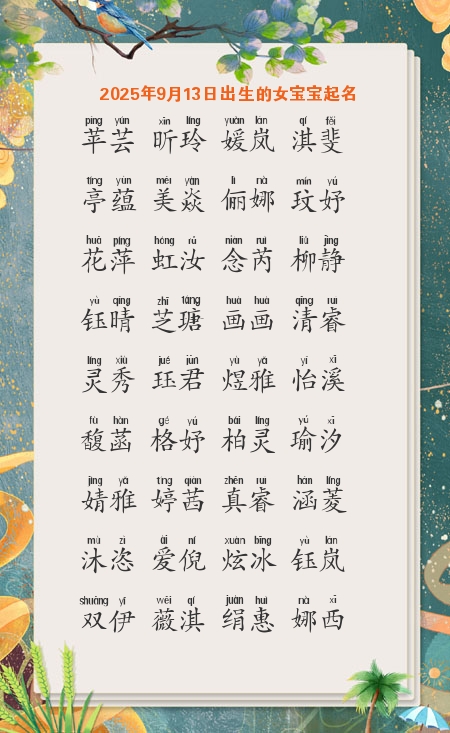 2025年9月13日出生的女宝宝起名
píng yún xīn líng yuàn lán qí fěi
苹芸 昕玲 媛岚 淇斐
tíng yùn měi yàn lì nà mín yú
亭蕴 美焱 俪娜 玟妤
huā píng hóng rǔ niàn ruì liǔ jìng
花萍 虹汝 念芮 柳静
yù qíng zhī táng huà huà qīng ruì
钰晴 芝瑭 画画 清睿
líng xiù jué jūn yù yǎ yí xī
灵秀 珏君 煜雅 怡溪
fù hàn gé yú bǎi líng yú xī
馥菡 格妤 柏灵 瑜汐
jìng yǎ tíng qiàn zhēn ruì hán líng
婧雅 婷茜 真睿 涵菱
mù zī ài ní xuàn bīng yù lán
沐恣 爱倪 炫冰 钰岚
shuāng yī wēi qí juàn huì nà xī
双伊 薇淇 绢惠 娜西